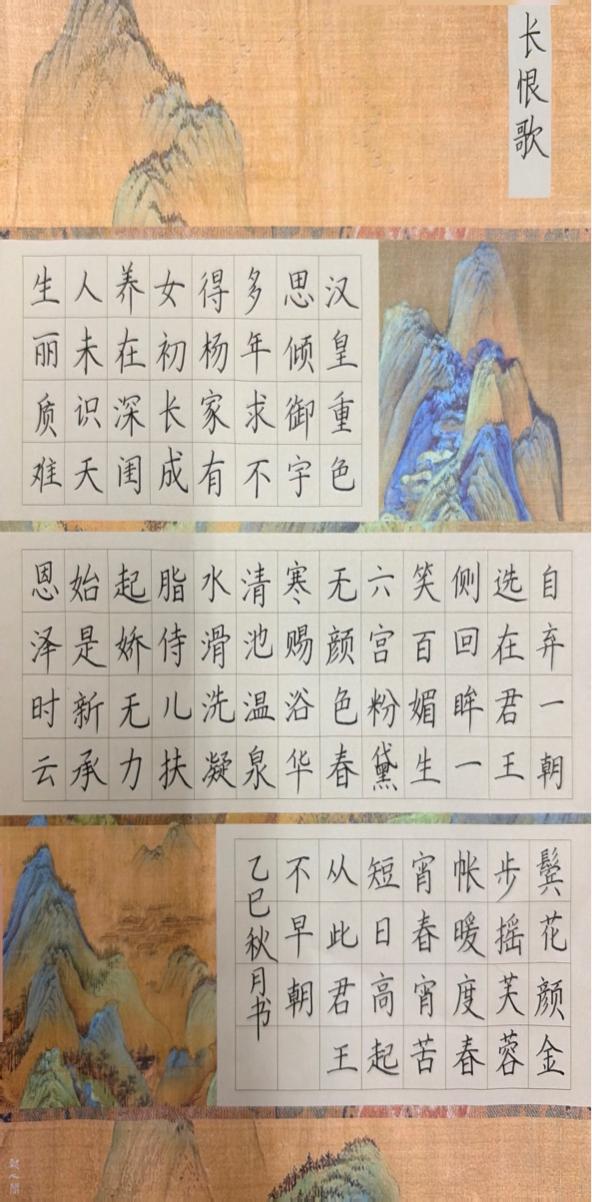 长恨歌
汉皇重色
思倾御宇
多年求不
得杨家有
女初长成
养在深闺
人未识天
生丽质难
自弃一朝
选在君王
侧回眸一
笑百媚生
六宫粉黛
无颜色春
寒赐浴华
清池温泉
水滑洗凝
脂侍儿扶
起娇无力
始是新承
恩泽时云
鬓花颜金
步摇芙蓉
帐暖度春
宵春宵苦
短日高起
从此君王
不早朝
乙巳秋月书